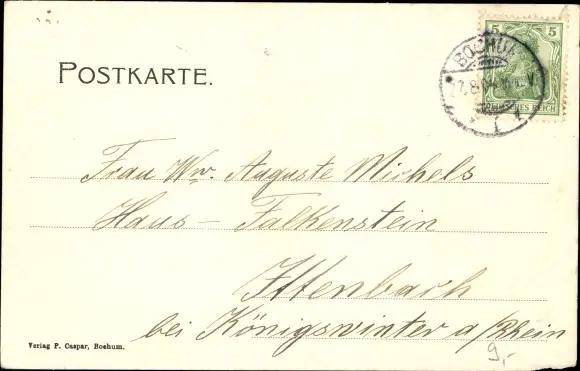 POSTKARTE.
5 5
BOCHUM
DEUTSCHES REICH
Frau Ww. Auguste Michels
Haus - Falkenstein
Ittenbach
bei Königswinter a/Rhein
9,-
Verlag P. Caspar, Bochum.